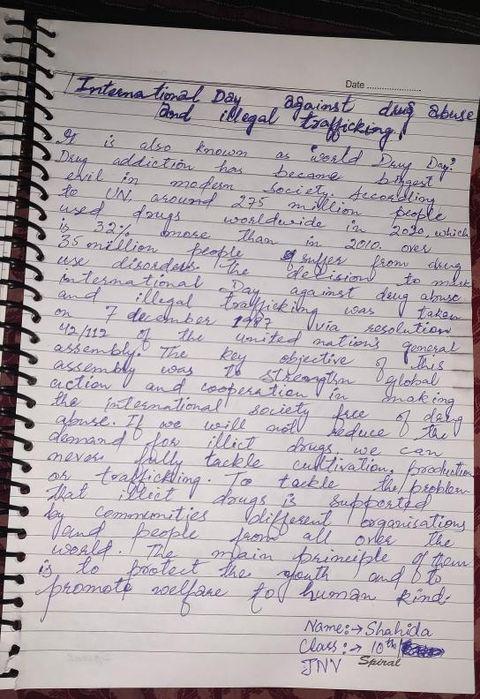 Date
International Day against drug abuse
and illegal trafficking!
It is also known as "world Drug Day".
Drug addiction has became biggest
evil in modern society. According
to UN, around 275 million people
used drugs worldwide in 2020, which
is 22% more than in 2010. over
35 million people suffer from drug
use disorders. the decision to mark
international Day against drug abuse
and illegal trafficking was taken
on 7 december 1987 via resolution
42/112 of the united nation's general
assembly. The key objective of this
assembly was to strengthn global
action and cooperation in making
the international society free of drug
abuse. If we will not reduce the
demand for illict drugs, we can
never fully tackle cultivation, production
or trafficking. To tackle the problem
that illict drugs is supported
by communities different organisations
and people from all over the
world. The main principle of them
is to protect the youth and to
promote welfare to human kind.
Name:→ Shahida
Class:→ 10th
JNV Spiral